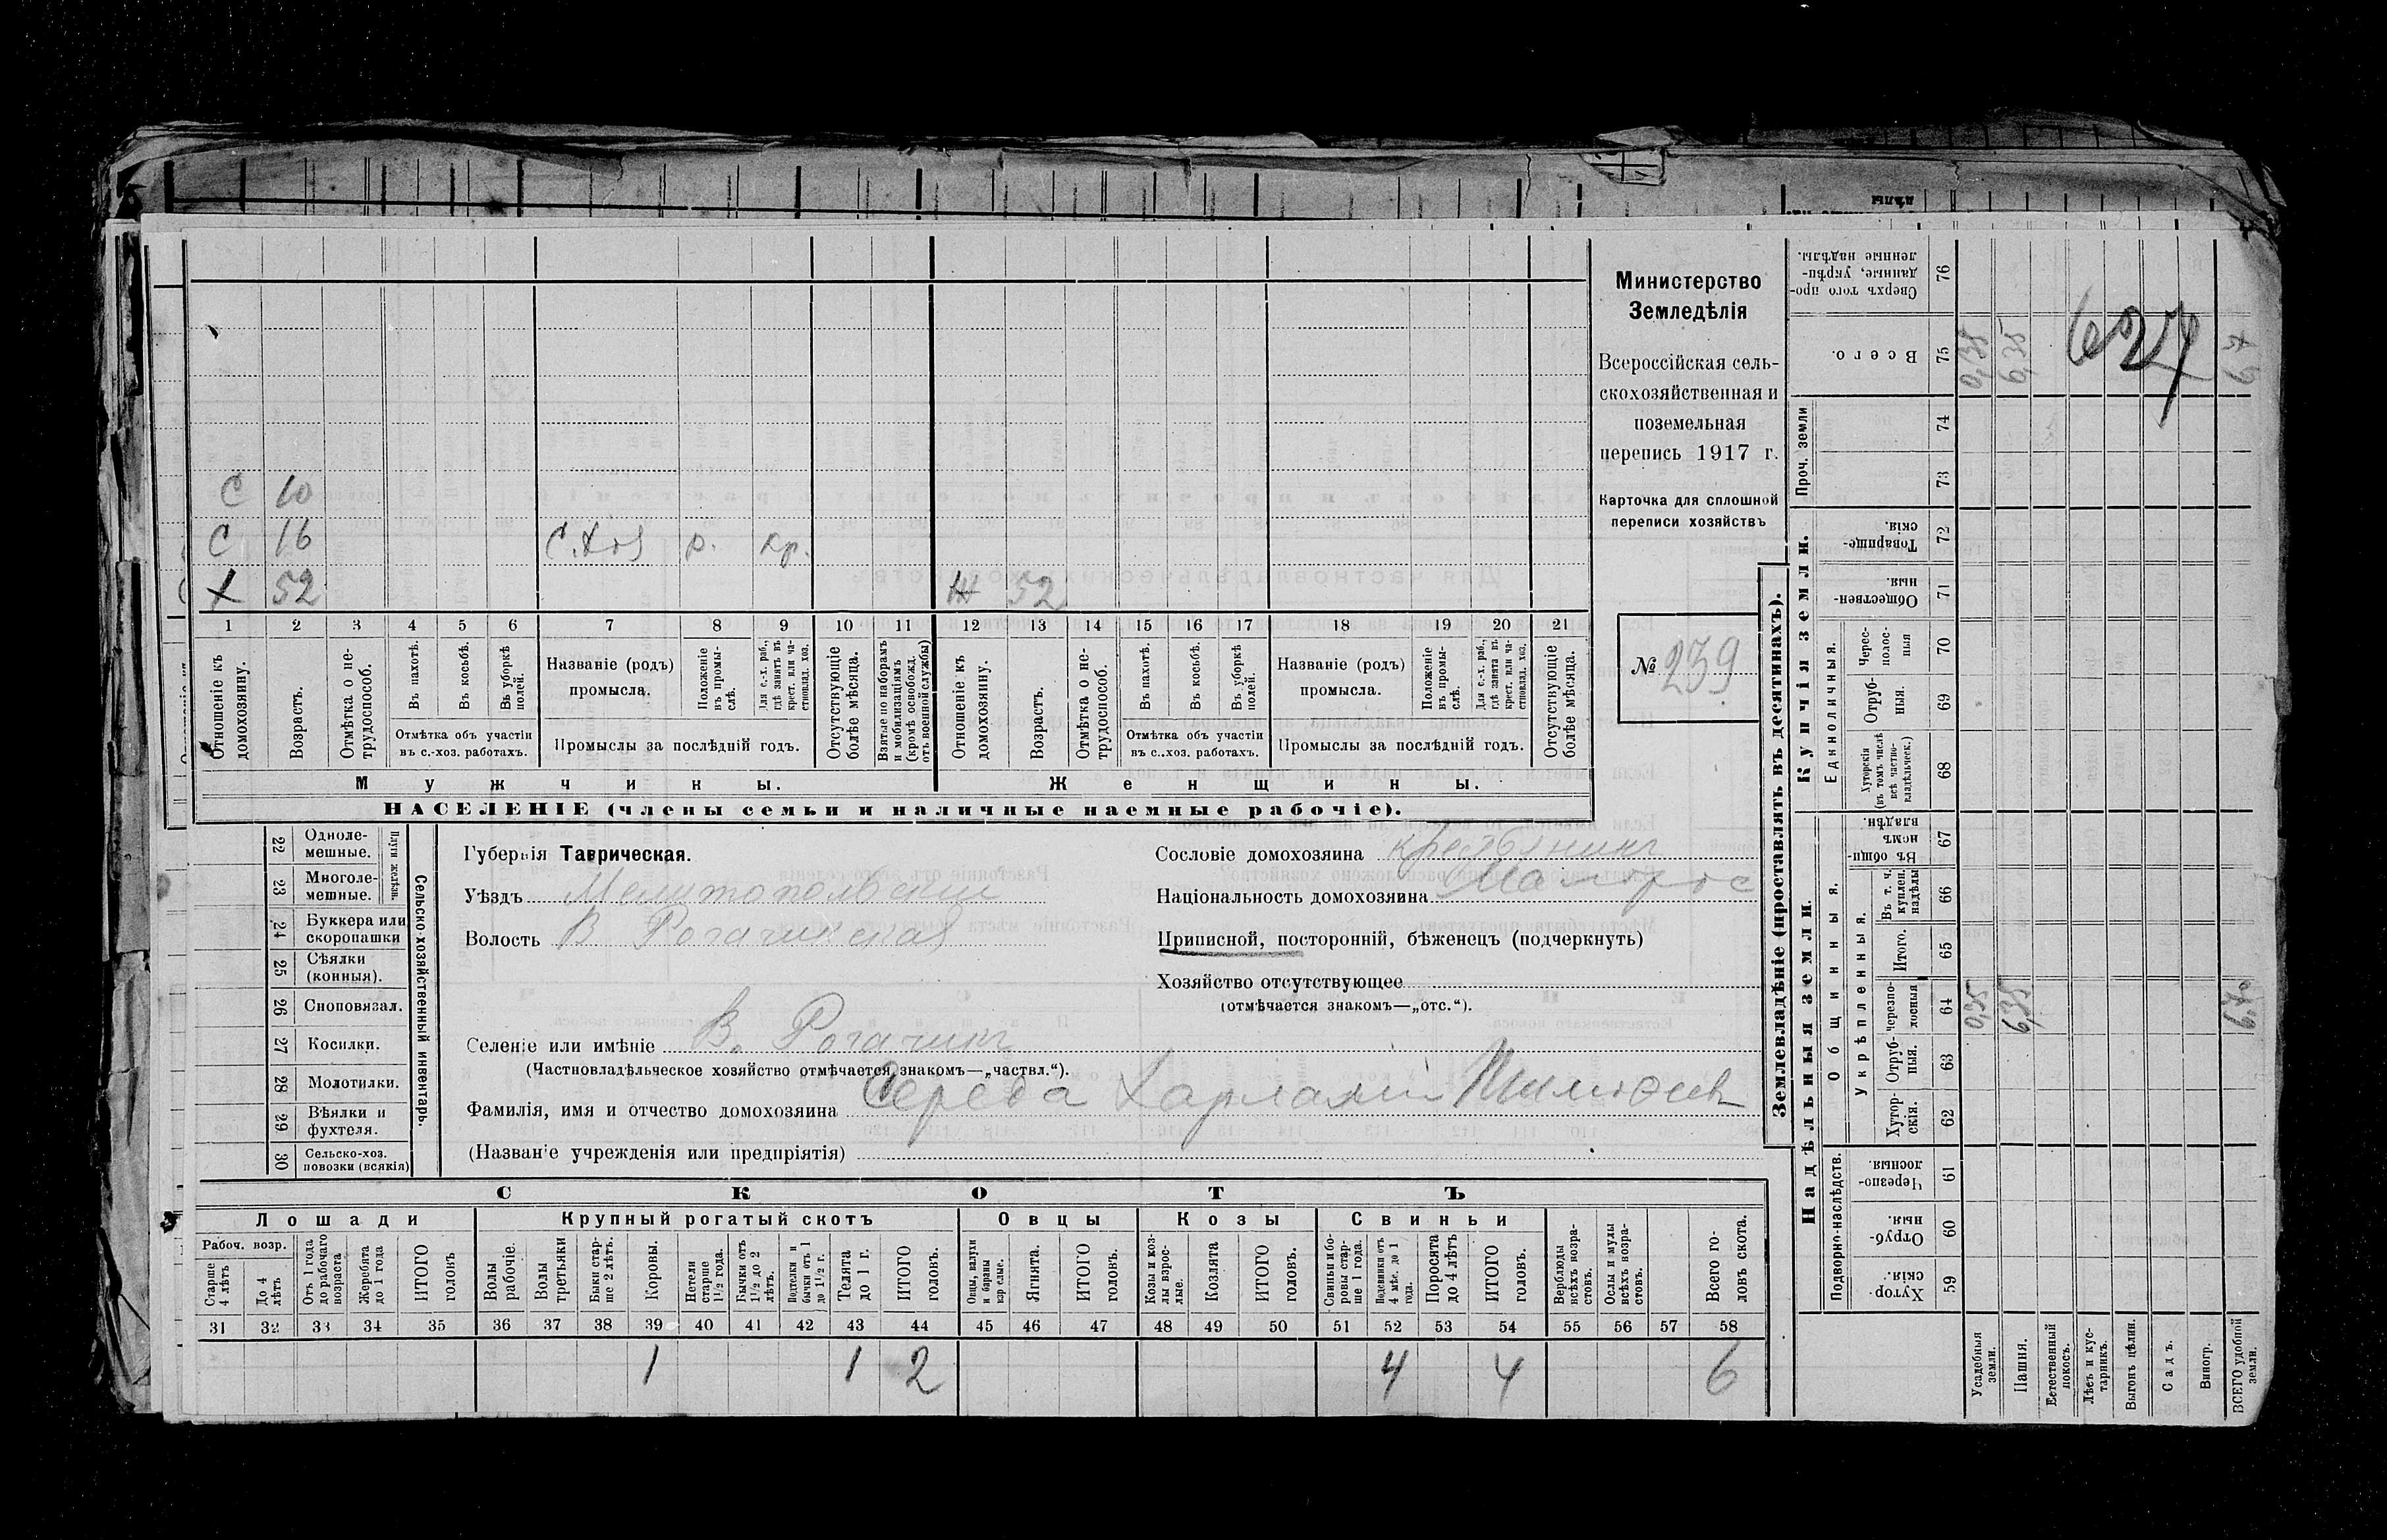 С 10
С 16 С.Хоз р. кр.
Х 52 Ж 52
1 2 3 4 5 6 7 8 9 10 11 12 13 14 15 16 17 18 19 20 21
Отношеніе къ домохозяину.
Возрастъ.
Отмѣтка о не-трудоспособ.
Въ пахотѣ.
Въ косьбѣ.
Въ уборкѣ полей.
Отмѣтка объ участіи
въ с.-хоз. работахъ.
Названіе (родъ)
промысла.
Положеніе въ промы-слѣ.
Для с.-х. раб., гдѣ занятъ въ крест. или ча-стновлад. хоз.
Промыслы за послѣдній годъ.
Отсутствующіе болѣе мѣсяца.
Взятые по наборамъ и мобилизаціямъ (кромѣ освобожд. отъ военной службы)
Отношеніе къ домохозяину.
Возрастъ.
Отмѣтка о не-трудоспособ.
Въ пахотѣ.
Въ косьбѣ.
Въ уборкѣ полей.
Отмѣтка объ участіи
въ с..хоз. работахъ.
Названіе (родъ)
промысла.
Положеніе въ промы-слѣ.
Для с.-х. раб., гдѣ занята въ крест. или ча-стновлад. хоз.
Промыслы за послѣдній годъ.
Отсутствующіе болѣе мѣсяца.
Мужчины. Женщины.
НАСЕЛЕНІЕ (члены семьи и наличные наемные рабочіе).
Министерство
Земледѣлія
Всероссійская сель-
скохозяйственная и
поземельная
перепись 1917 г.
Карточка для сплошной
переписи хозяйствъ
№ 239
22 Одноле-мешные.
23 Многоле-мешные.
24 Буккера или скоропашки
25 Сѣялки (конныя).
26 Сноповязал.
27 Косилки.
28 Молотилки.
29 Вѣялки и фухтеля.
30 Сельско-хоз. повозки (всякія)
Сельско-хозяйственный инвентарь.
Губернія Таврическая.
Уѣздъ Мелитопольскій
Волость В Рогачикская
Сословіе домохозяина крестьянинъ
Національность домохозяина Малорос
Приписной, посторонній, бѣженецъ (подчеркнуть)
Хозяйство отсутствующее
(отмѣчается знакомъ—„отс.“).
Селеніе или имѣніе В. Рогачикъ
(Частновладѣльческое хозяйство отмѣчается знакомъ—„частвл.“).
Фамилія, имя и отчество домохозяина Середа Харлампій Тимофеев
(Названіе учрежденія или предпріятія)
СКОТЪ
Лошади Крупный рогатый скотъ Овцы Козы Свиньи
Рабоч. возр.
Старше 4 лѣтъ
До 4 лѣтъ
Отъ 1 года до рабочаго возраста
Жеребята до 1 года
ИТОГО головъ
Волы рабочіе.
Волы третьяки
Быки стар-ше 2 лѣтъ.
Коровы.
Нетели старше 1½ года.
Бычки отъ 1½ до 2 лѣтъ.
Подтелки и бычки отъ 1 до 1½ г.
Телята до 1 г.
ИТОГО головъ.
Овцы, валухи и бараны взрослые.
Ягнята.
ИТОГО головъ.
Козы и коз-лы взрос-лые.
Козлята
ИТОГО головъ.
Свиньи и бо-ровы стар-ше 1 года.
Подсвинки отъ 4 мѣс. до 1 года.
Поросята до 4 лѣтъ
ИТОГО головъ.
Верблюды всѣхъ возра-стовъ.
Ослы и мулы всѣхъ возра-стовъ.
Всего го-ловъ скота.
31 32 33 34 35 36 37 38 39 40 41 42 43 44 45 46 47 48 49 50 51 52 53 54 55 56 57 58
1 1 2 4 4 6
Землевладѣніе (проставлять въ десятинахъ).
Купчія земли.
Надѣльныя земли.
Сверхъ того про-данные, укрѣп-ленные надѣлы. 76
Всего. 75 0,35 6,35 67
627
Проч. земли 74 73
Товарище-скія. 72
Обществен-ныя 71
Единоличныя.
Черес-полос-ныя 70
Отруб-ныя. 69
Хуторскія (въ томъ числѣ всѣ частно-владѣльческ.) 68
Общинныя.
Въ общин-номъ владѣн. 67
Укрѣпленныя.
Въ т. ч. куплен. надѣлы 66
Итого. 65
черезпо-лосныя 64 0,35 6,35 6,70
Отруб-ныя. 63
Хутор-скія. 62
Подворно-наслѣдств.
Черезпо-лосныя. 61
Отруб-ныя. 60
Хутор-скія. 59
Усадебныя земли.
Пашня.
Естественный покосъ.
Лѣсъ и кус-тарникъ.
Выгонъ цѣлин.
Садъ.
Виногр.
ВСЕГО удобной земли.